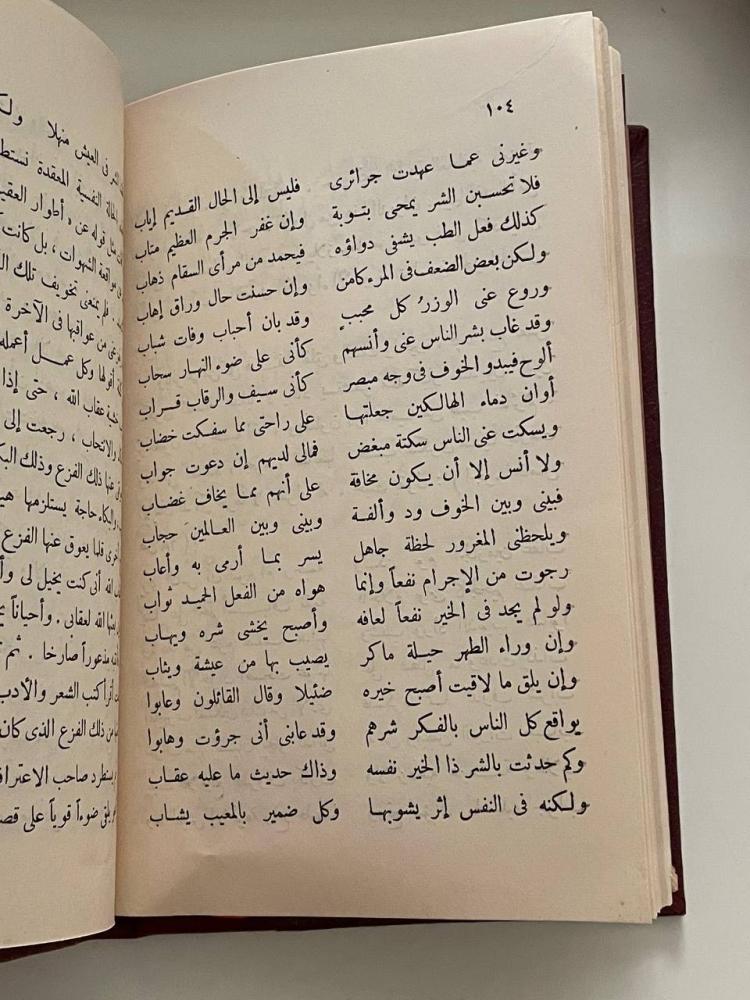 ١٠٤
وغيرنى عما عهدت جرائرى فليس إلى الحال القديم إياب
فلا تحسبن الشر يمحى بتوبة وإن غفر الجرم العظيم متاب
كذلك فعل الطب يشفى دواؤه فيحمد من مرأى السقام ذهاب
ولكن بعض الضعف فى المرء كامن وإن حسنت حال وراق إهاب
وروع عنى الوزرُ كل محببٍ وقد بان أحباب وفات شباب
وقد غاب بشر الناس عنى وأنسهم كأنى على ضوء النهار سحاب
ألوح فيبدو الخوف فى وجه مبصر كأنى سيف والرقاب قراب
أوان دماء الهالكين جعلتها على راحتى مما سفكت خضاب
ويسكت عنى الناس سكتة مبغض فمالى لديهم إن دعوت جواب
ولا أنس إلا أن يكون مخافة على أنهم مما يخاف غضاب
فبينى وبين الخوف ود وألفة وبينى وبين العالمين حجاب
ويلحظنى المغرور لحظة جاهل يسر بما أرمى به وأعاب
رجوت من الإجرام نفعاً وإنما هواه من الفعل الحميد ثواب
ولو لم يجد فى الخير نفعاً لعافه وأصبح يخشى شره ويهاب
وإن وراء الطهر حيلة ماكر يصيب بها من عيشة ويثاب
وإن يلق ما لاقيت أصبح خيره ضئيلا وقال القائلون وعابوا
يواقع كل الناس بالفكر شرهم وقد عابنى أنى جرؤت وهابوا
وكم حدثت بالشر ذا الخير نفسه وذاك حديث ما عليه عقاب
ولكنه فى النفس إثر يشوبها وكل ضمير بالمعيب يشاب
فى العيش منهلا
الحالة النفسية المعقدة
مثل قوله عن « أطوار
مواقعة الشهوات ، بل كانت
فلم يمنعنى تخويف تلك
من عواقبها فى الآخرة
أقولها وكل عمل أعمله
خشية عقاب الله ، حتى إذا
والانتحاب ، رجعت إلى
عنها ذلك الفزع وذلك
والبكاء حاجة يستلزمها
قلما يعوق عنها الفزع
الله أنى كنت يخيل لى
الله لعقابى . وأحياناً
مذعوراً صارخا . ثم
كتب الشعر والأدب
من ذلك الفزع الذى كان
صاحب
ضوءاً قوياً على